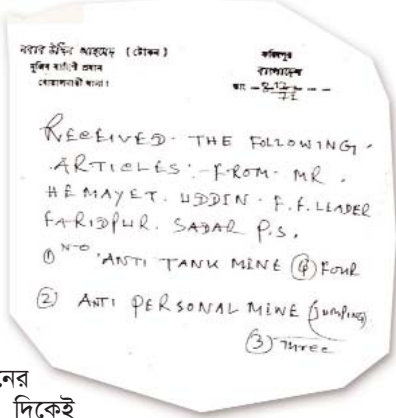 নবাব উদ্দিন আহমেদ (টোকন)
মুজিব বাহিনী প্রধান
বোয়ালমারী থানা।
ফরিদপুর
বাংলাদেশ
তাং
RECEIVED. THE FOLLOWING.
ARTICLES: FROM. MR.
HEMAYET. UDDIN. F.F. LEADER
FARIDPUR. SADAR P.S.
① N-O ANTI TANK MINE ④ FOUR
② ANTI PERSONAL MINE (JUMPING)
③ Three
নের
দিকেই